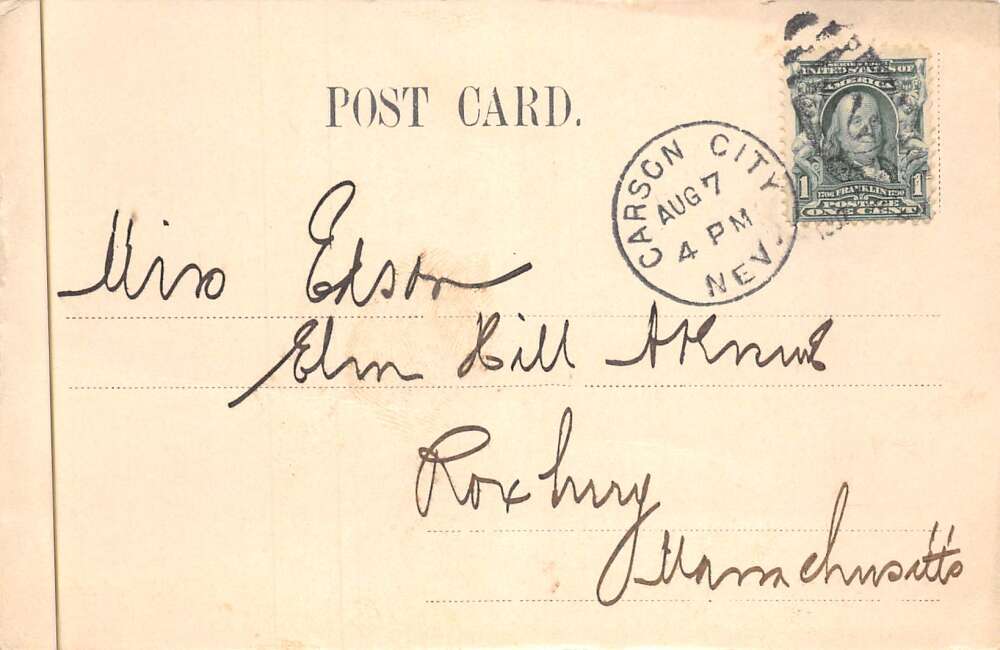 POST CARD.
CARSON CITY
AUG 7
4 PM
NEV.
SERIES 1902
UNITED STATES OF
AMERICA
1 FRANKLIN 1
POSTAGE
ONE CENT
Miss Edson
Elm Hill Avenue
Roxbury
Massachusetts